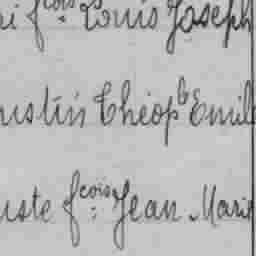 ri fcois Louis Joseph
ustin Théople Emile
uste fcois: Jean Marie